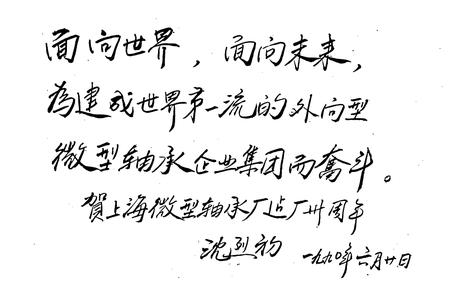 面向世界，面向未来，
为建成世界第一流的外向型
微型轴承企业集团而奋斗。
贺上海微型轴承厂造厂卅周年
沈烈初 一九九〇年六月廿日